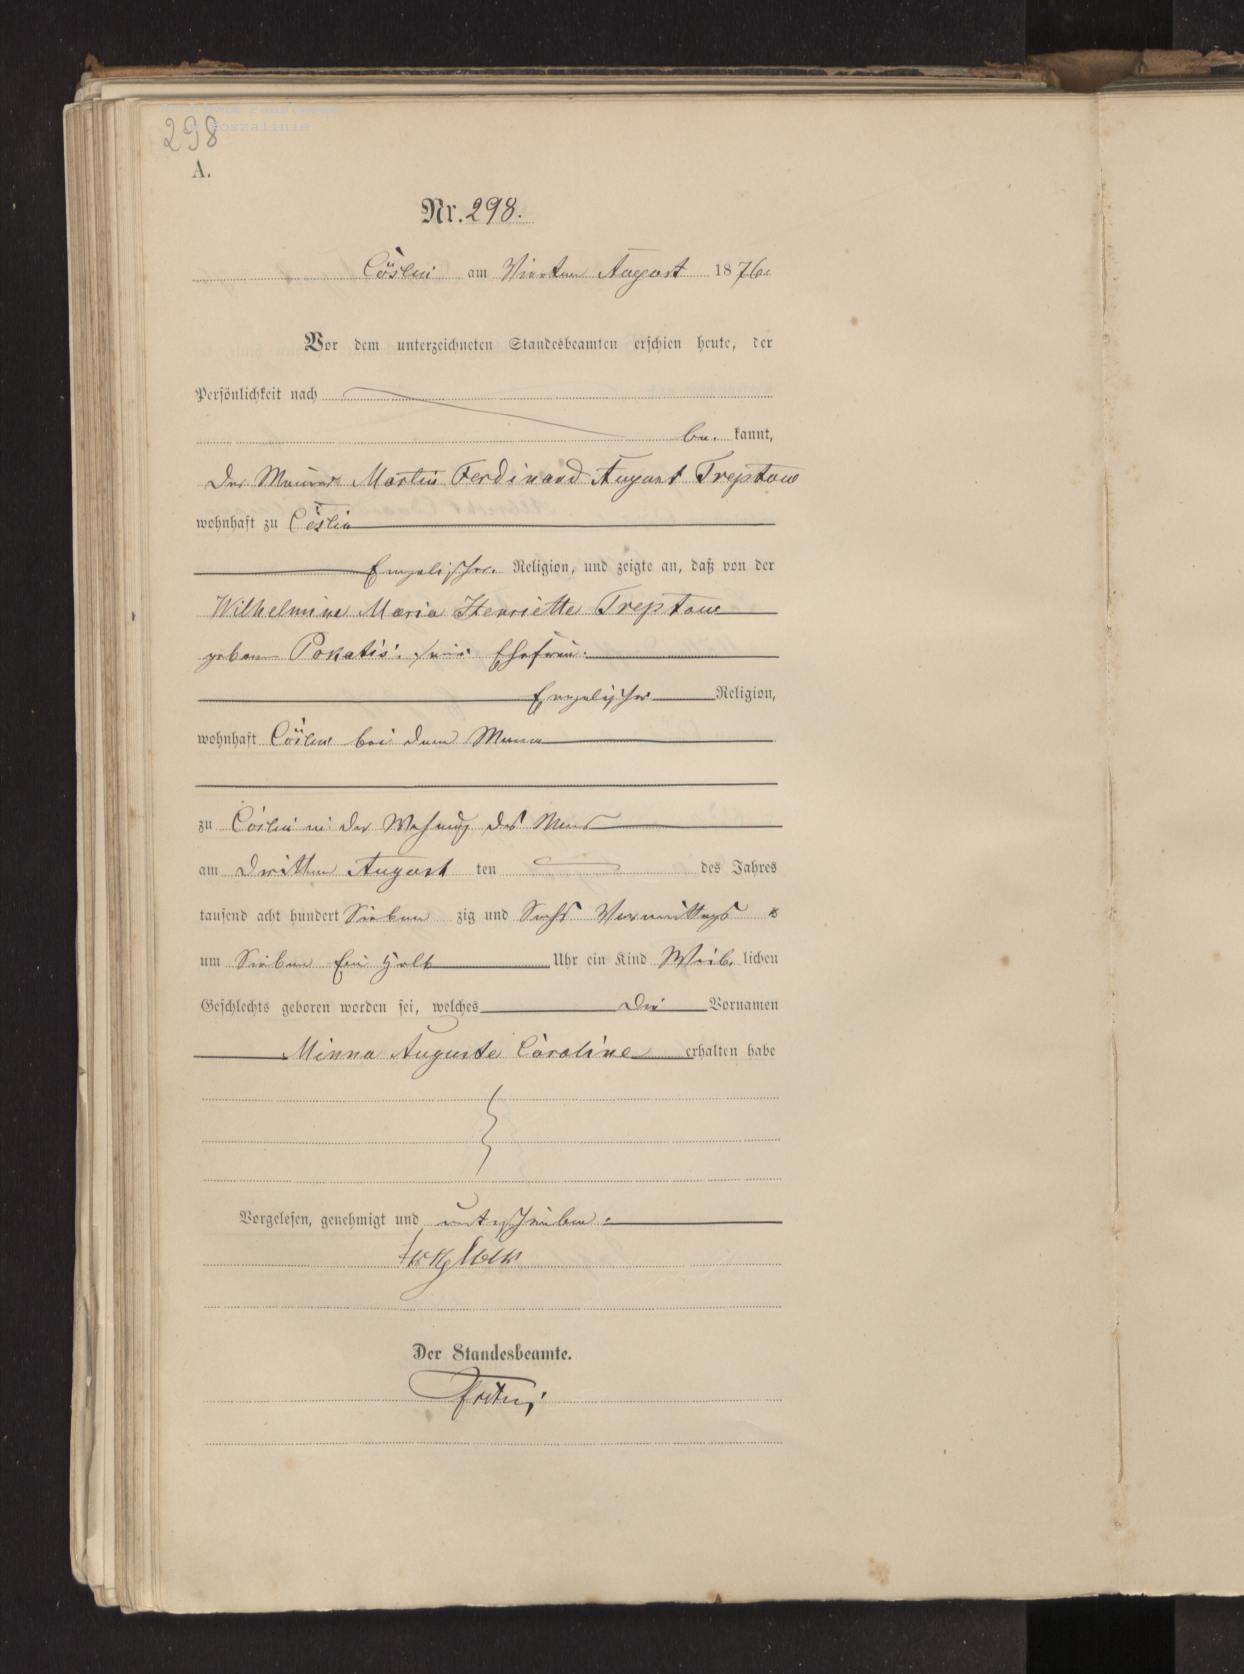 298
A.
Nr. 298.
Cöslin am Vierten August 1876.
Vor dem unterzeichneten Standesbeamten erschien heute, der
Persönlichkeit nach
be. kannt,
Der Maurer Martin Ferdinand August Treptow
wohnhaft zu Cöslin
Evngelischer Religion, und zeigte an, daß von der
Wilhelmine Maria Henriette Treptow
geboren seine Ehefrau
Evngelischer Religion,
wohnhaft Cöslin bei dem Mann
zu Cöslin in der Wohnung des Mans
am Dritten August ten des Jahres
tausend acht hundert Sieben zig und Sechs Vormittags
um Sieben Ein halb Uhr ein Kind Weib. lichen
Geschlechts geboren worden sei, welches Die Vornamen
Minna Auguste Caroline erhalten habe
Vorgelesen, genehmigt und unterschrieben
Der Standesbeamte.